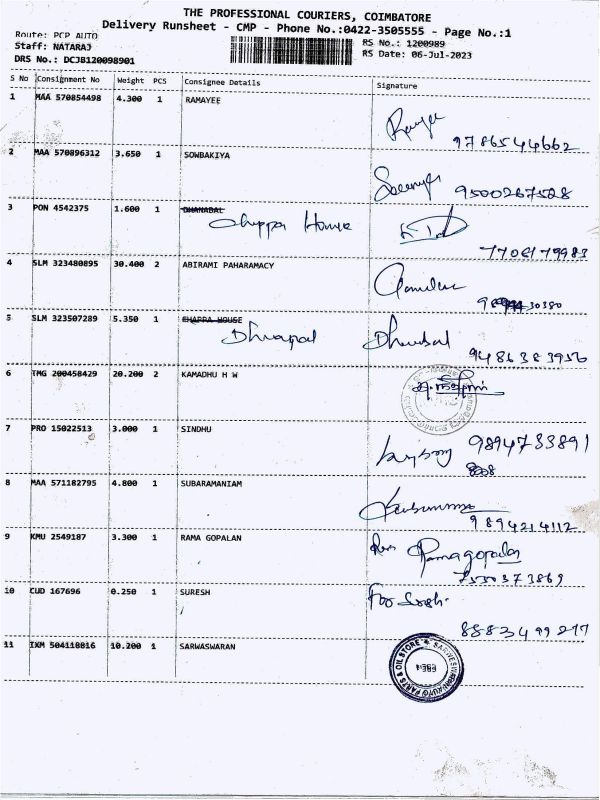 THE PROFESSIONAL COURIERS, COIMBATORE
Delivery Runsheet - CMP - Phone No.:0422-3505555 - Page No.:1
Route: PCP AUTO
RS No.: 1200989
Staff: NATARAJ
RS Date: 06-Jul-2023
DRS No.: DCJB120098901
S No Consignment No Weight PCS Consignee Details Signature
1 MAA 570854498 4.300 1 RAMAYEE
9786544662
2 MAA 570896312 3.650 1 SOWBAKIYA
9500267528
3 PON 4542375 1.600 1 DHANABAL
Chappa House
7706179983
4 SLM 323480895 30.400 2 ABIRAMI PAHARAMACY
5 SLM 323507289 5.350 1 CHAPPA HOUSE
Dhanapal Dhanabal
9486383956
6 TMG 200458429 20.200 2 KAMADHU H W
7 PRO 15022513 3.000 1 SINDHU
9894733891
8 MAA 571182795 4.800 1 SUBARAMANIAM
9894214112
9 KMU 2549187 3.300 1 RAMA GOPALAN
Ramagopalan
7550373869
10 CUD 167696 0.250 1 SURESH
8883499277
11 IXM 504118816 10.200 1 SARWASWARAN
PARTS & OIL STORE